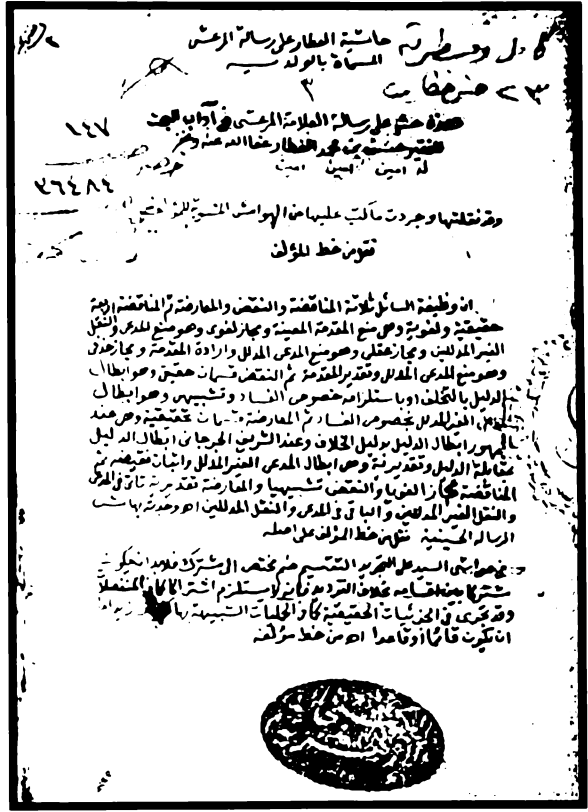 حاشية العطار على رسالة المرعشى
المسماة بالولدية
٣
٢٣
هذه حشي على رسالة العلامة المرعشى فى آداب البحث
١٤٧
للفقير حسن بن محمد العطار عفا الله عنه
له امين امين امين
٣٦٤٨٤
وقد نقلتها وجردت ما كتب عليها من الهوامش المنسوبة للمؤلف
نقل من خط المؤلف
ان وظيفة السائل ثلاثة المناقضة والنقض والمعارضة ثم المناقضة اربعة
حقيقية ولغوية وهى منع المقدمة المعينة ومجاز لغوى وهو منع المدعى والنقل
الغير المدللين ومجاز عقلى وهو منع المدعى المدلل وارادة المقدمة ومجاز حذفى
وهو منع المدعى المدلل وتقدير المقدمة ثم النقض قسمان حقيقى وهو ابطال
الدليل بالتخلف او باستلزامه خصوص الفساد وتشبيهى وهو ابطال
الغير المدلل بخصوص الفساد ثم المعارضة تحقيقية وهى عند
الجمهور ابطال الدليل بدليل الخلاف وعند الشريف الجرجانى ابطال الدليل
بمقابلة الدليل وتقديرية وهى ابطال المدعى الغير المدلل واثبات نقيضه ثم
المناقضة مجازا لغويا والنقض تشبيهيا والمعارضة تقديرية تأتى فى المدعى
والنقل الغير المدللين والباقى فى المدعى والنقل المدللين اه وجدته بهامش
الرسالة الحسينية نقل من خط المؤلف على اصله
فى حواشى السيد على التجريد التقسيم ضم مختص الى مشترك فلا بد ان يكون
مشتركا بين اقسامه بخلاف الترديد فانه لا يستلزم اشتراكا كما فى المنفصلات
وقد تجرى فى الجزئيات الحقيقية كما فى الحمليات الشبيهة بها زيد اما
ان يكون قائما او قاعدا اه من خط مؤلفه